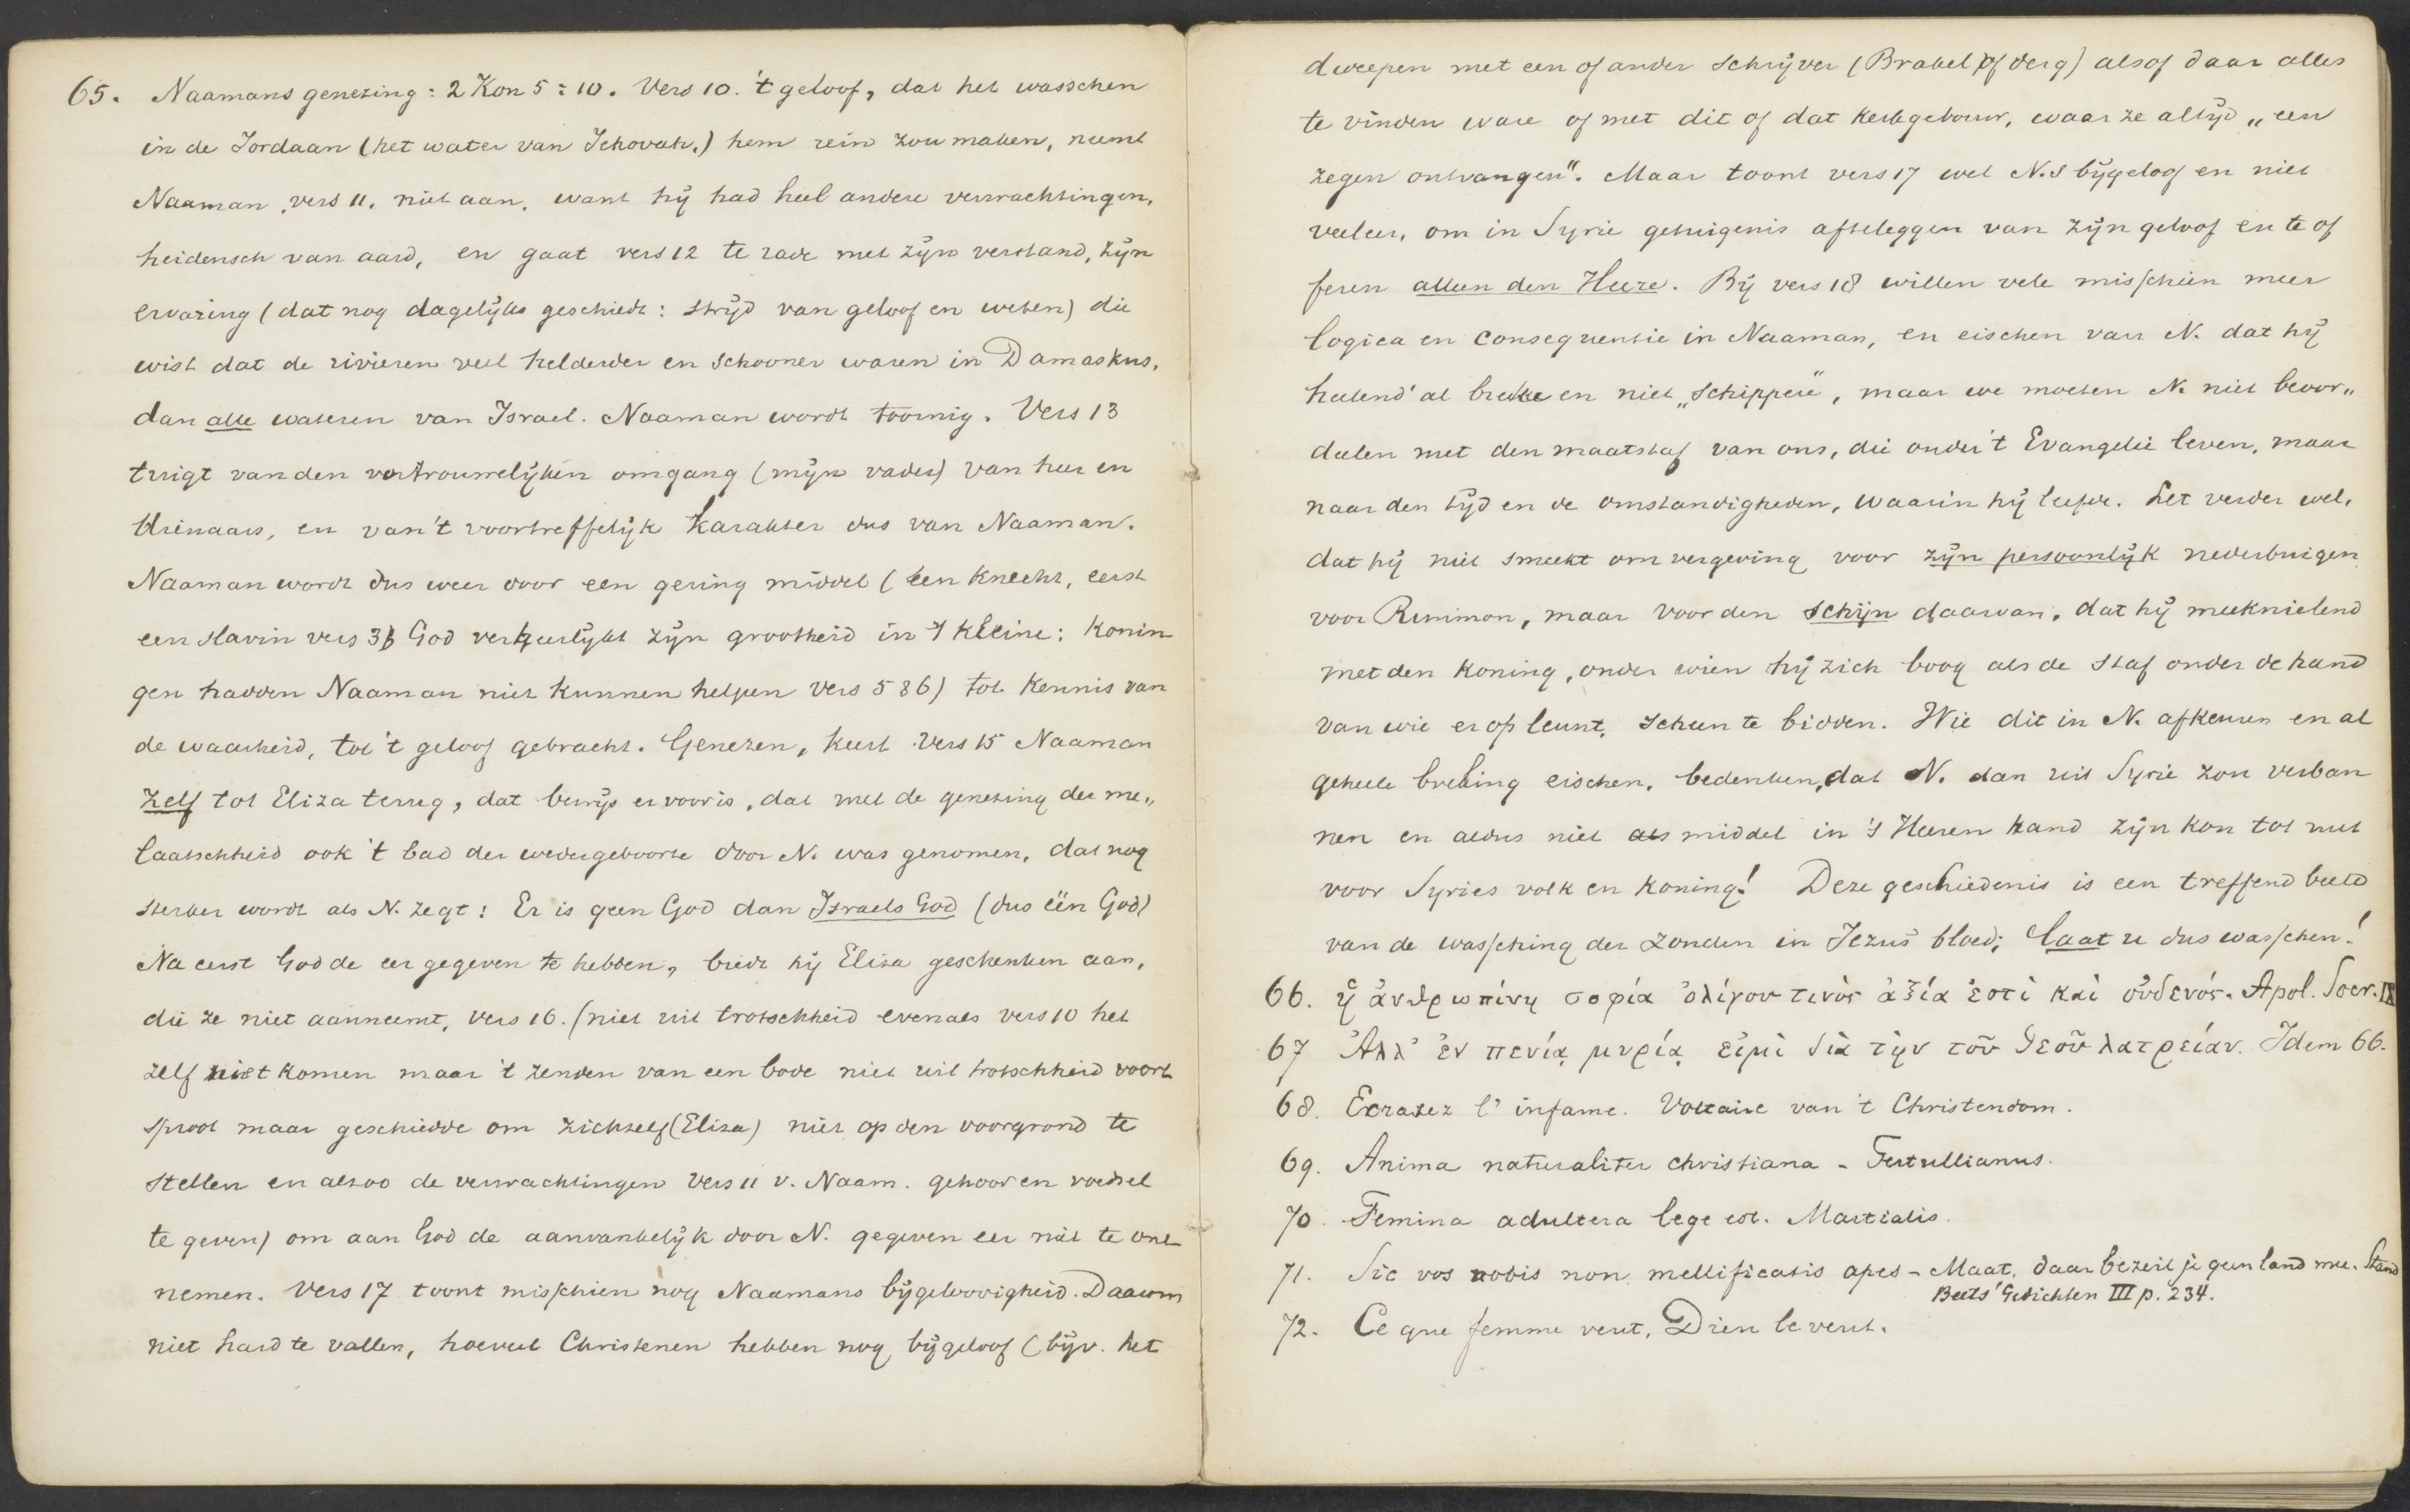 65. Naamans genezing: 2 Kon 5:10. Vers 10. 't geloof, dat het wasschen
in de Jordaan (het water van Jehovah.) hem rein zou maken, neemt
Naaman, vers 11. niet aan. want hij had heel andere verwachtingen,
heidensch van aard, en gaat vers 12 te rade met zijn verstand, zijn
ervaring (dat nog dagelijks geschiedt: strijd van geloof en weten) die
wist dat de rivieren veel helderder en schooner waren in Damaskus,
dan alle wateren van Israel. Naaman wordt toornig. Vers 13
tuigt van den vertrouwelijken omgang (mijn vader) van heer en
dienaars, en van 't voortreffelijk karakter dus van Naaman.
Naaman wordt dus weer door een gering middel (een knecht, eerst
een slavin vers 3) God verheerlijkt zijn grootheid in 't kleine: Konin
gen hadden Naaman niet kunnen helpen vers 5 & 6) tot kennis van
de waarheid, tot 't geloof gebracht. Genezen, keert vers 15 Naaman
zelf tot Eliza terug, dat bewijs er voor is, dat met de genezing der me„
laatschheid ook 't bad der wedergeboorte door N. was genomen, dat nog
sterker wordt als N. zegt: Er is geen God dan Israels God (dus één God)
Na eerst God de eer gegeven te hebben, biedt hij Elisa geschenken aan,
die ze niet aanneemt, vers 16. (niet uit trotschheid evenals vers 10 het
zelf niet komen maar 't zenden van een bode niet uit trotschheid voort
sproot maar geschiedde om zichzelf (Elisa) niet op den voorgrond te
stellen en alzoo de verwachtingen vers 11 v. Naam. gehoor en voedsel
te geven) om aan God de aanvankelijk door N. gegeven eer niet te ont
nemen. Vers 17 toont misschien nog Naamans bijgeloovigheid. Daarom
niet hard te vallen, hoeveel Christenen hebben nog bijgeloof (bijv. het
dweepen met een of ander schrijver (Brakel of derg) alsof daar alles
te vinden ware of met dit of dat kerkgebouw, waar ze altijd „een
zegen ontvangen". Maar toont vers 17 wel N.s bijgeloof en niet
veeleer, om in Syrie getuigenis afteleggen van zijn geloof en te of
feren alleen den Heere. Bij vers 18 willen vele misschien meer
logica en consequentie in Naaman, en eischen van N. dat hij
heelend' al breke en niet „schippere", maar we moeten N. niet beoor„
deelen met den maatstaf van ons, die onder 't Evangelie leven, maar
naar den tijd en de omstandigheden, waarin hij leefde. Let verder wel,
dat hij niet smeekt om vergeving voor zijn persoonlijk nederbuigen
voor Rimmon, maar voor den schijn daarvan, dat hij meeknielend
met den koning, onder wien hij zich boog als de staf onder de hand
van wie er op leunt, scheen te bidden. Wie dit in N. afkeuren en al
geheele breking eischen, bedenken, dat N. dan uit Syrie zou verban
nen en aldus niet als middel in 's Heeren hand zijn kon tot nut
voor Syries volk en koning! Deze geschiedenis is een treffend beeld
van de wassching der zonden in Jezus' bloed; laat u dus wasschen!
66. ἡ ἀνθρωπίνη σοφία ὀλίγου τινὸς ἀξία ἐστὶ καὶ οὐδενός. Apol. Socr. IX
67 Ἀλλ' ἐν πενίᾳ μυρίᾳ εἰμὶ διὰ τὴν τοῦ θεοῦ λατρείαν. Idem 66.
68. Ecrasez l'infame. Voltaire van 't Christendom.
69. Anima naturaliter christiana - Tertullianus.
70. Femina adultera lege est. Martialis.
71. Sic vos nobis non mellificatis apes - Maat, daar bezeil je geen land mee. Stand
Beets' Gedichten III p. 234.
72. Ce que femme veut, Dieu le veut.